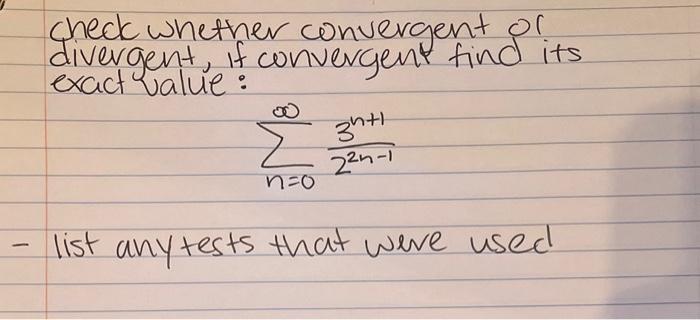 check whether convergent or
divergent, if convergent find its
exact value:
∞
∑ 3^{n+1} / 2^{2n-1}
n=0
- list any tests that were used